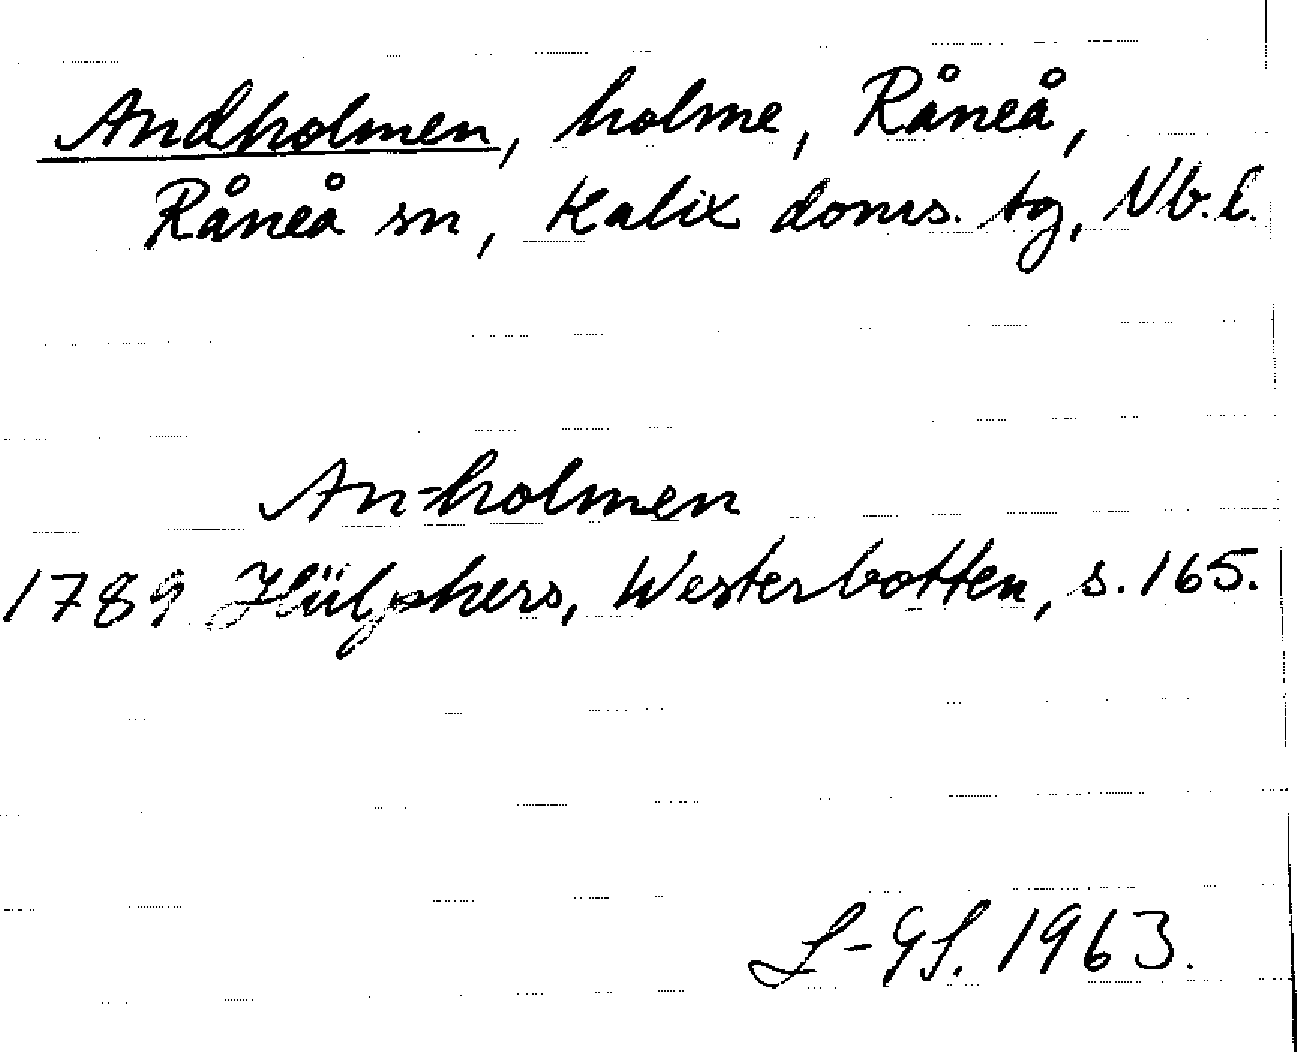 Andholmen, holme, Råneå,
Råneå sn, Kalix doms. tg, Nb. l.
An-holmen
1789 Hülphers, Westerbotten, s. 165.
L-GS. 1963.